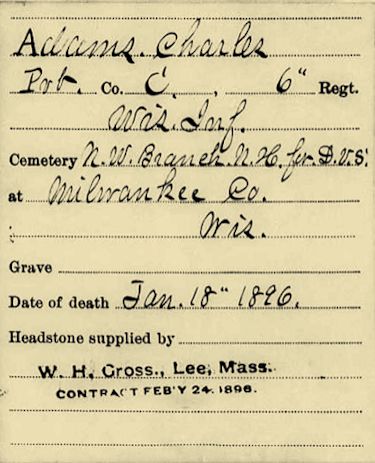 Adams. Charles
Pvt. Co. C. , 6" Regt.
Wis. Inf.
Cemetery N. W. Branch N. H. for D. V. S.
at Milwaukee Co.
Wis.
Grave
Date of death Jan. 18" 1896.
Headstone supplied by
W. H. Gross., Lee, Mass.
CONTRACT FEB'Y 24. 1896.